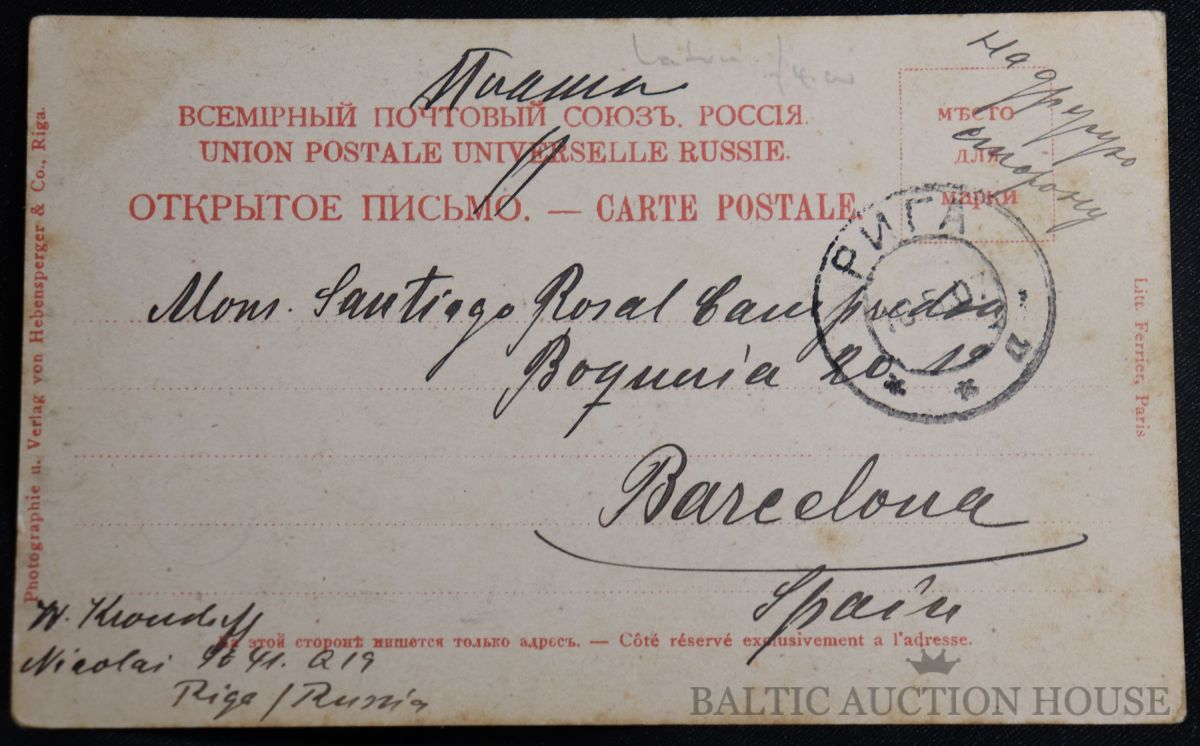 ВСЕМІРНЫЙ ПОЧТОВЫЙ СОЮЗЪ. РОССІЯ.
UNION POSTALE UNIVERSELLE RUSSIE.
ОТКРЫТОЕ ПИСЬМО. — CARTE POSTALE
МѢСТО
ДЛЯ
МАРКИ
на другую
сторону
РИГА
Mons. Santiago Rosal
Boqueria 20 1º
Barcelona
Spain
Photographie u. Verlag von Hebensperger & Co., Riga.
Litt. Ferrier, Paris
На этой сторонѣ пишется только адресъ. — Côté réservé exclusivement a l'adresse.
Nicolai Q 19
Riga / Russia
BALTIC AUCTION HOUSE